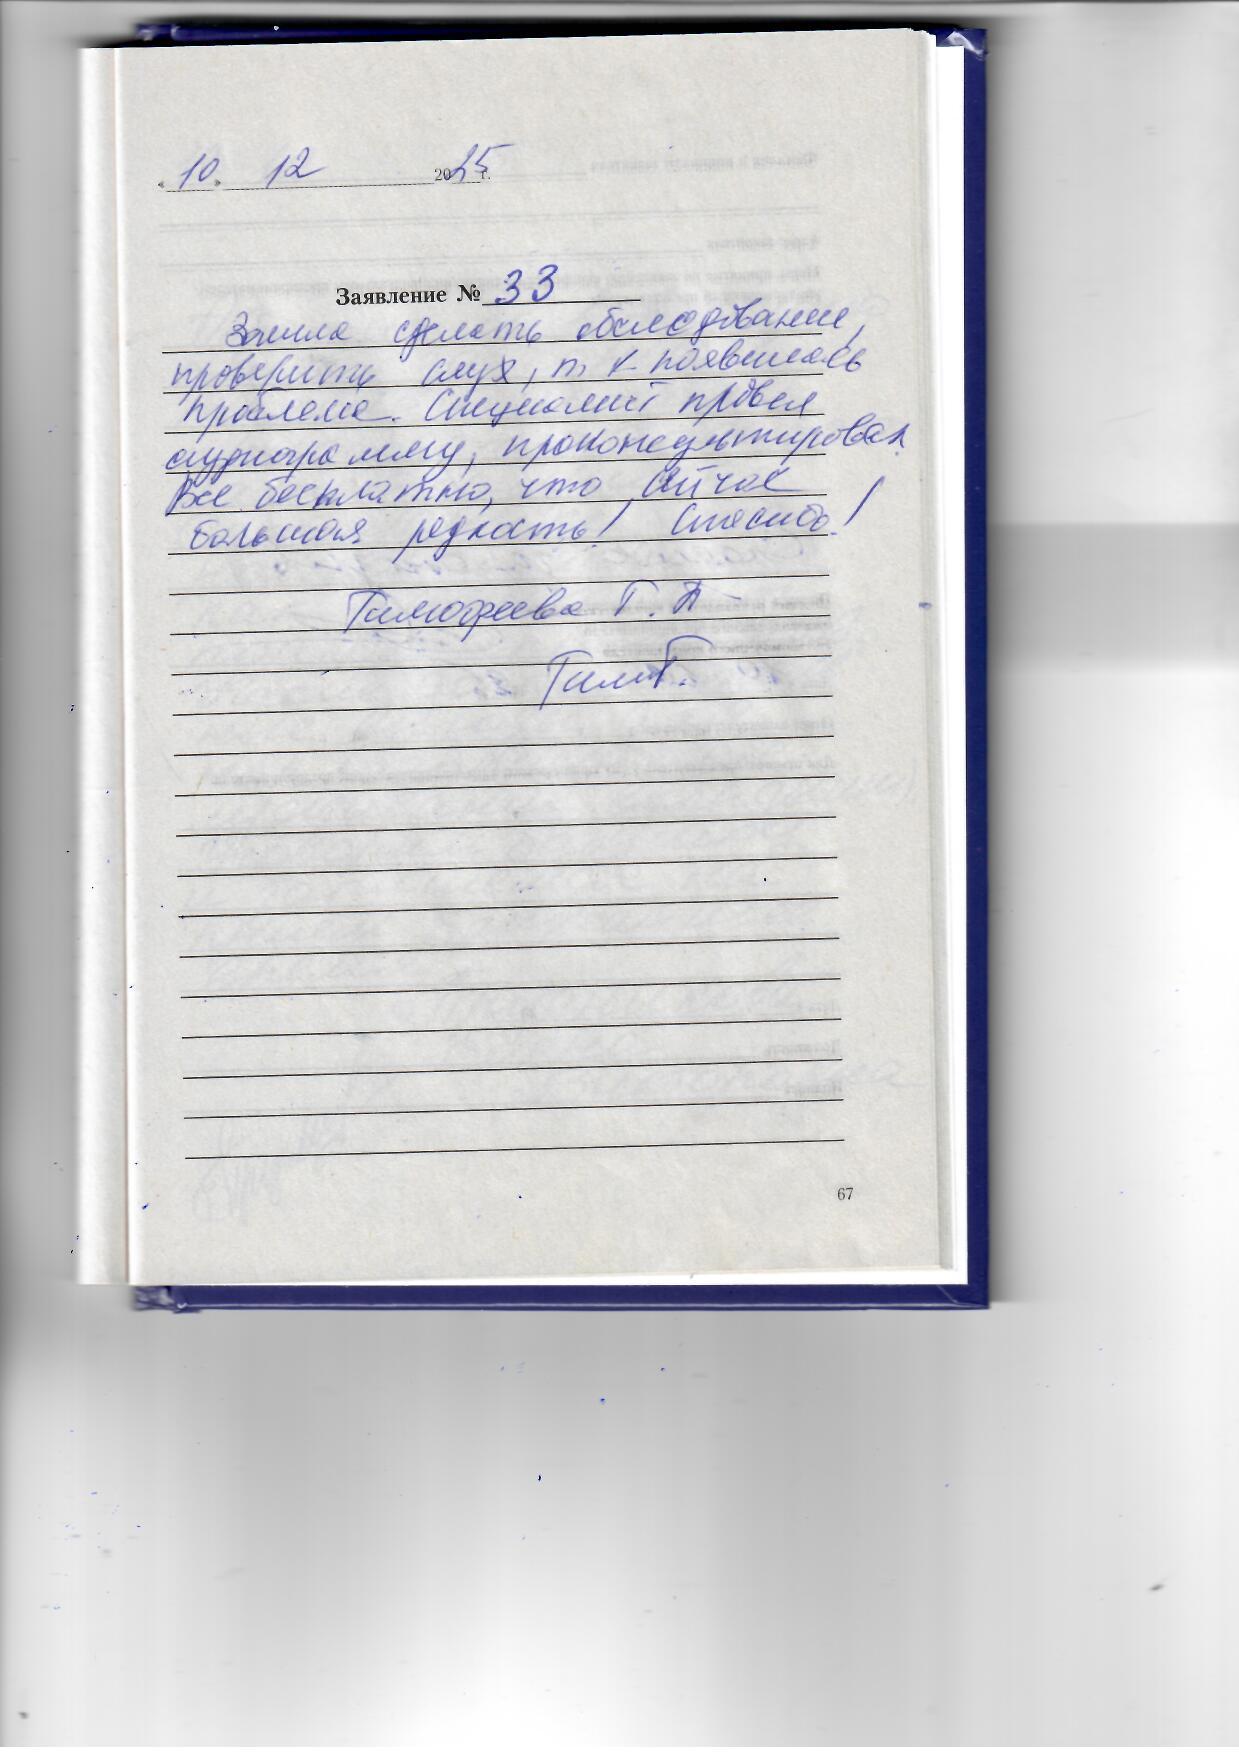 « 10 » 12 2025 г.
Заявление № 33
Зашла сделать обследование,
проверить слух, т. к появилась
проблема. Специалист провел
аудиограмму, проконсультировал.
Все бесплатно, что сейчас
большая редкость! Спасибо!
Тимофеева Г. А
67